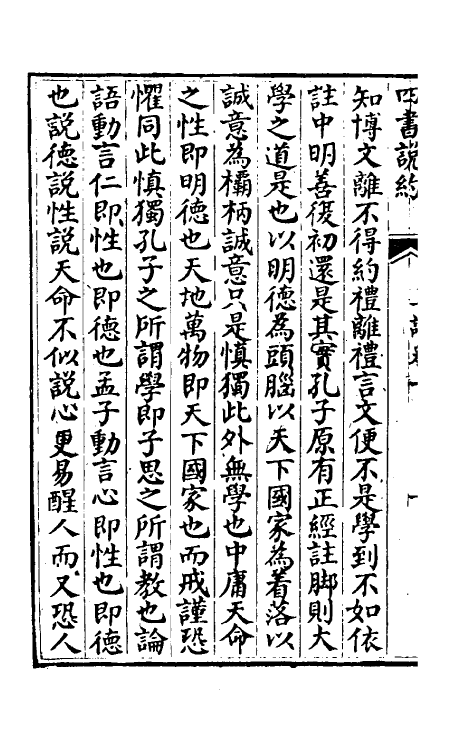 四書說約
知博文離不得約禮離禮言文便不是學到不如依
註中明善復初還是其實孔子原有正經註脚則大
學之道是也以明德為頭腦以天下國家為着落以
誠意為欛柄誠意只是慎獨此外無學也中庸天命
之性即明德也天地萬物即天下國家也而戒謹恐
懼同此慎獨孔子之所謂學即子思之所謂教也論
語動言仁即性也即德也孟子動言心即性也即德
也說德說性說天命不似說心更易醒人而又恐人